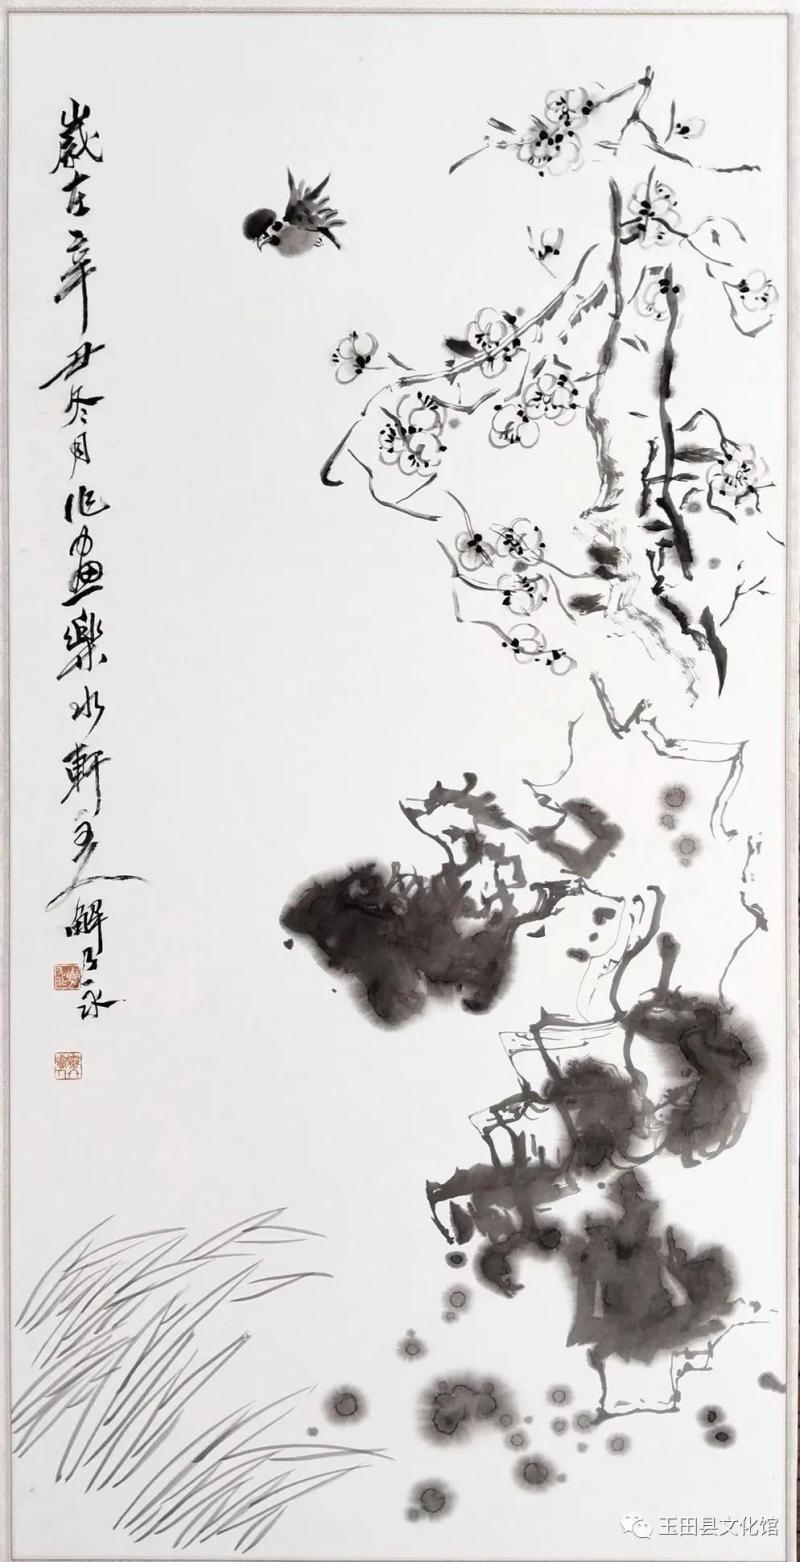 歲在辛丑冬月作画樂水軒主人解乃永
玉田县文化馆